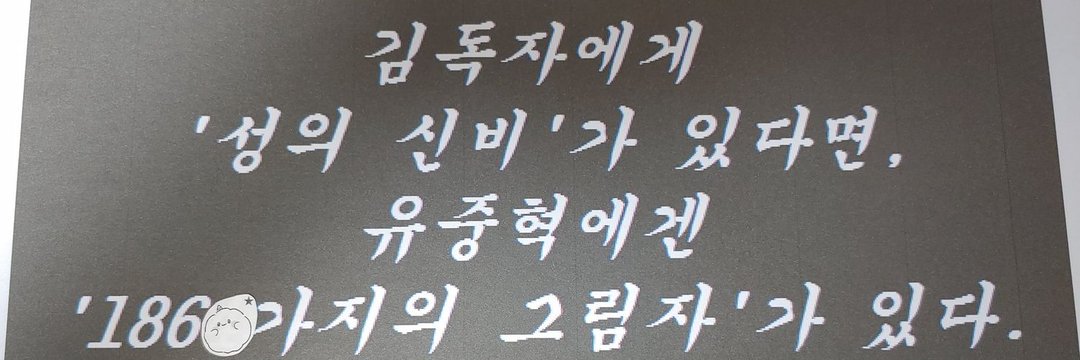 김독자에게
'성의 신비'가 있다면,
유중혁에겐
그림자'가 있다.